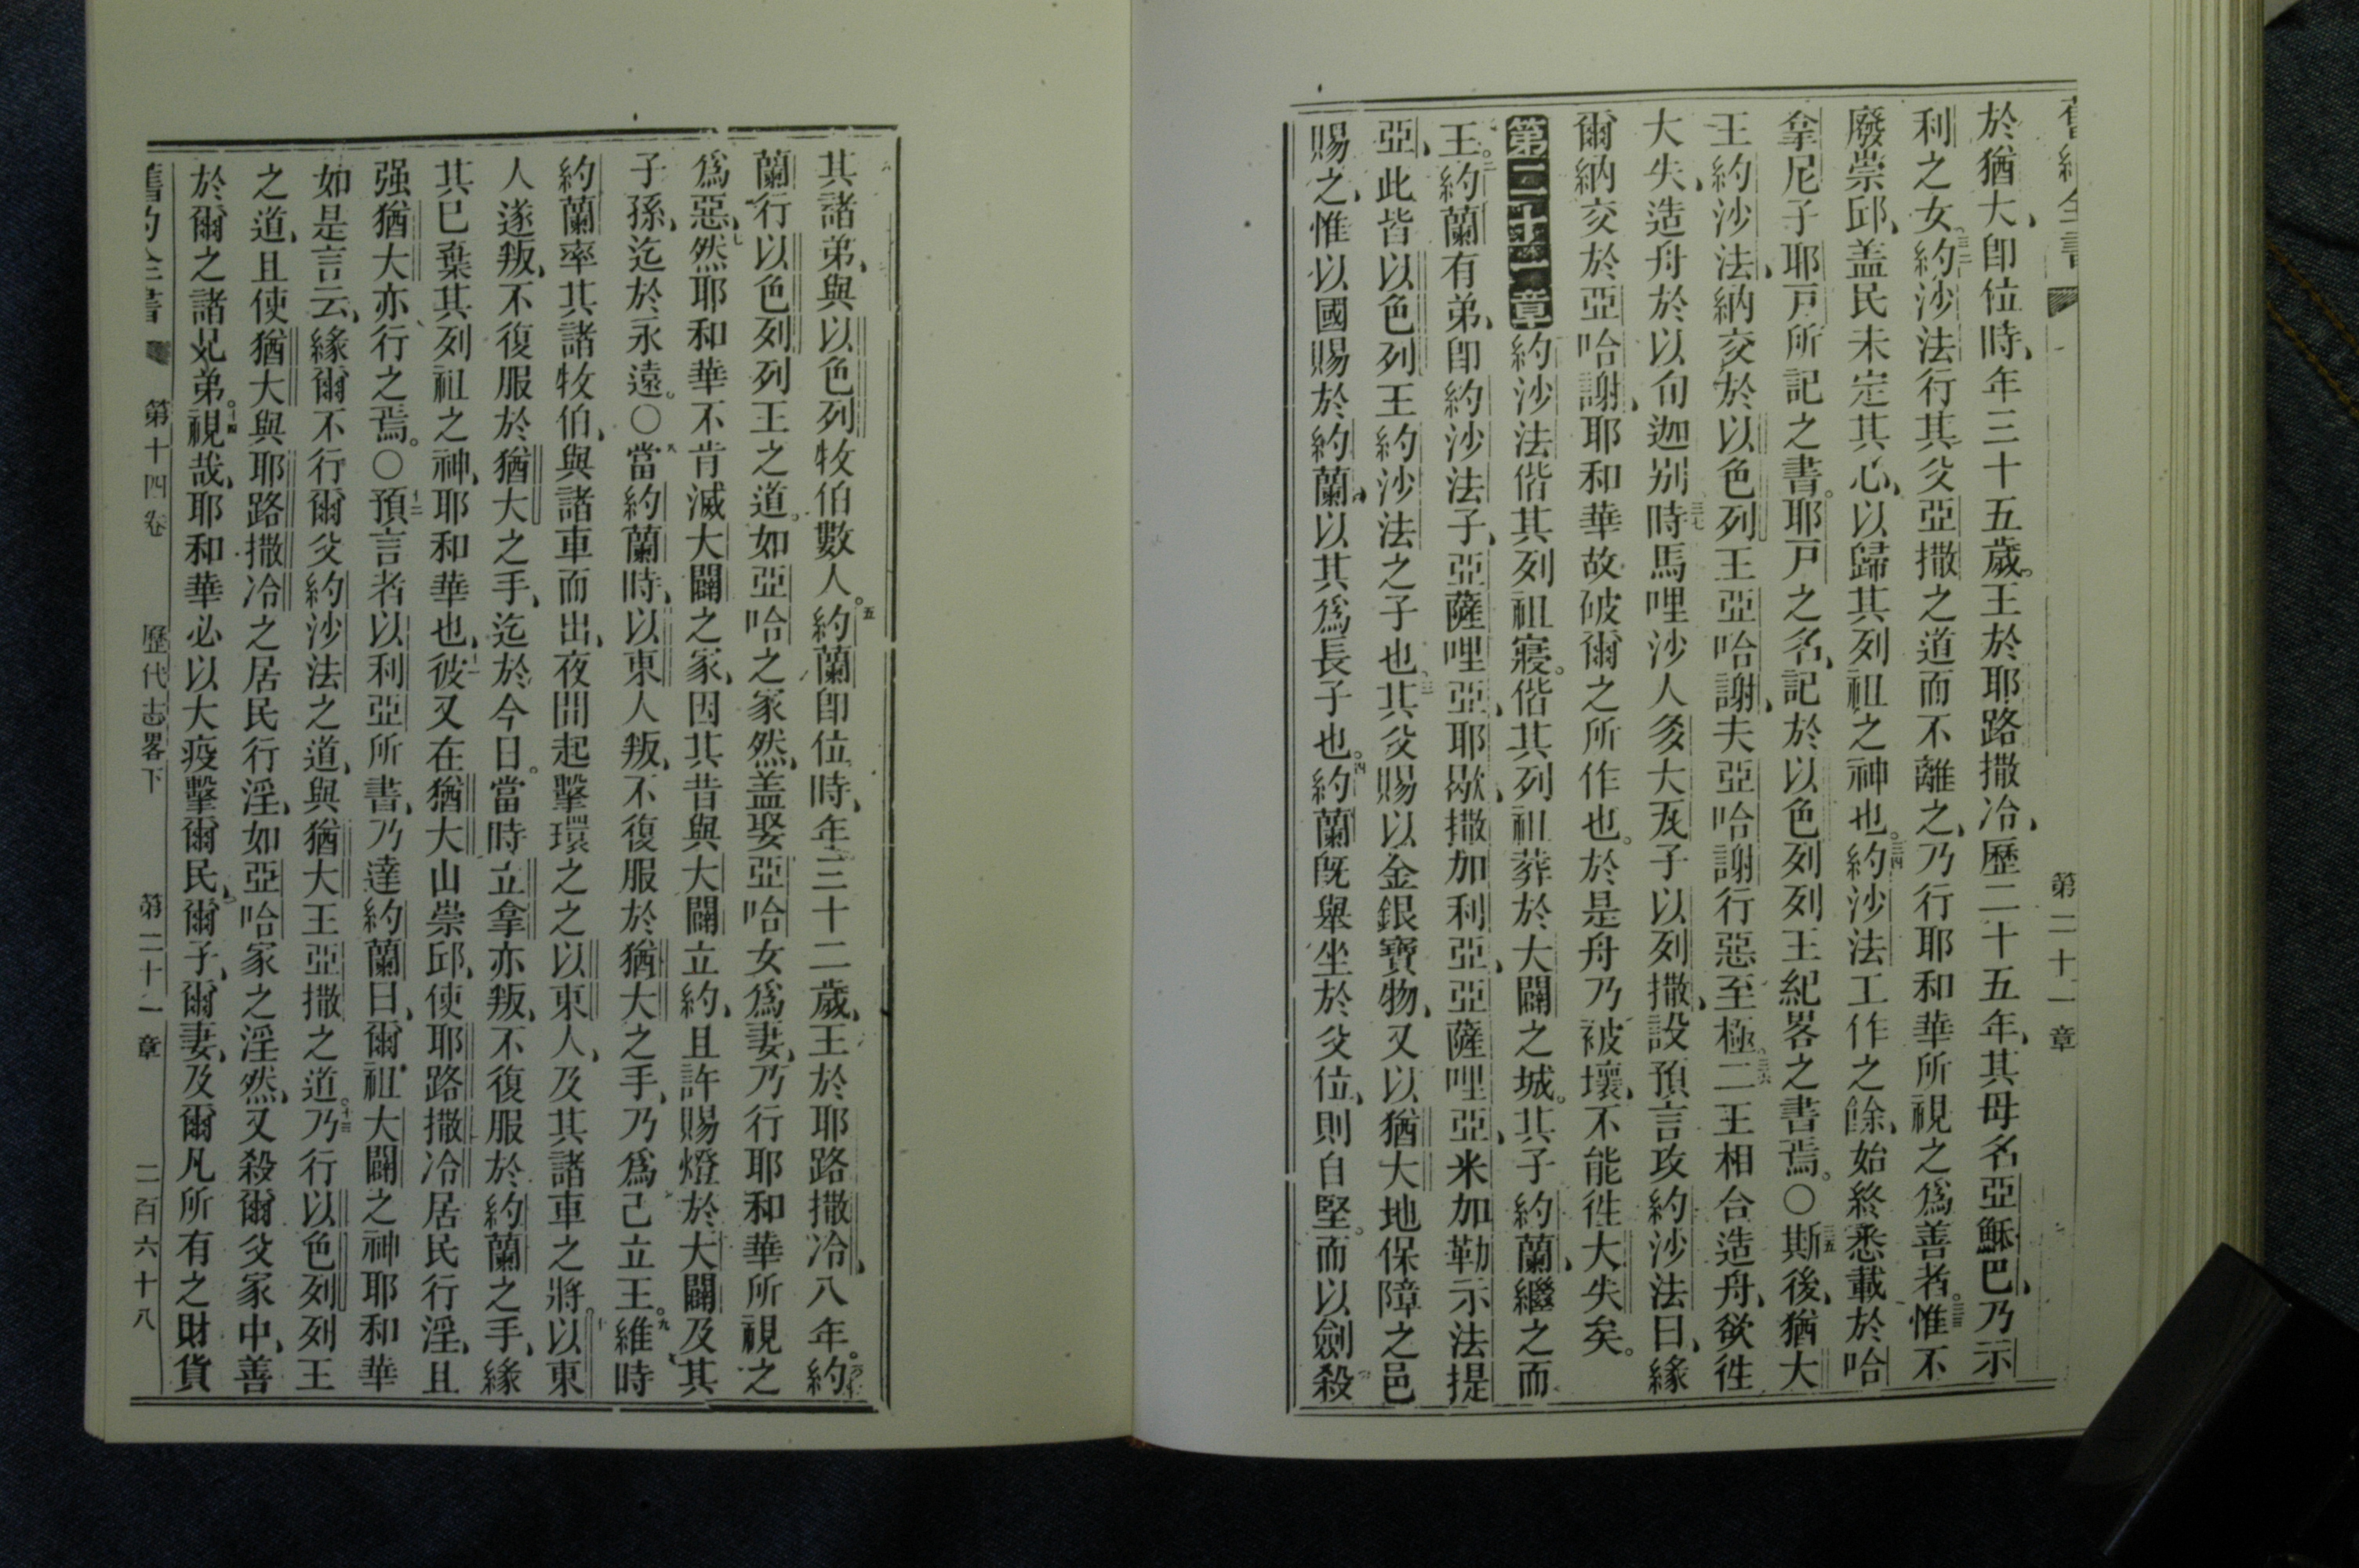 舊約全書
第二十一章
於猶大、卽位時、年三十五歲。王於耶路撒冷、歷二十五年、其母名亞穌巴、乃示
利之女。三二約沙法行其父亞撒之道而不離之、乃行耶和華所視之爲善者。三三惟不
廢崇邱、盖民未定其心、以歸其列祖之神也。三四約沙法工作之餘、始終悉載於哈
拿尼子耶戸所記之書。耶戸之名、記於以色列列王紀畧之書焉。○三五斯後、猶大
王約沙法、納交於以色列王亞哈謝、夫亞哈謝行惡至極。三六二王相合造舟、欲徃
大失、造舟於以旬迦别。三七時馬哩沙人多大瓦子以列撒、設預言攻約沙法曰、緣
爾納交於亞哈謝、耶和華故破爾之所作也。於是舟乃被壞、不能徃大失矣。
第二十一章約沙法偕其列祖寢。偕其列祖葬於大闢之城。其子約蘭、繼之而
王。二約蘭有弟、卽約沙法子、亞薩哩亞、耶歇、撒加利亞、亞薩哩亞、米加勒、示法提
亞、此皆以色列王約沙法之子也。三其父賜以金銀寶物、又以猶大地保障之邑
賜之、惟以國賜於約蘭、以其爲長子也。四約蘭旣舉坐於父位、則自堅。而以劍殺
其諸弟、與以色列牧伯數人。五約蘭卽位時、年三十二歲、王於耶路撒冷、八年。六約
蘭行以色列列王之道。如亞哈之家然、盖娶亞哈女爲妻、乃行耶和華所視之
爲惡、七然耶和華不肯滅大闢之家、因其昔與大闢立約、且許賜燈於大闢及其
子孫、迄於永遠。○八當約蘭時、以東人叛、不復服於猶大之手、乃爲己立王。九維時
約蘭率其諸牧伯、與諸車而出、夜間起擊環之之以東人、及其諸車之將。十以東
人遂叛、不復服於猶大之手、迄於今日。當時立拿亦叛、不復服於約蘭之手、緣
其已棄其列祖之神、耶和華也、十一彼又在猶大山崇邱、使耶路撒冷居民行淫、且
强猶大亦行之焉。○十二預言者以利亞所書、乃達約蘭曰、爾祖大闢之神耶和華
如是言云、緣爾不行爾父約沙法之道、與猶大王亞撒之道。十三乃行以色列列王
之道、且使猶大與耶路撒冷之居民行淫、如亞哈家之淫然、又殺爾父家中、善
於爾之諸兄弟。十四視哉、耶和華必以大疫擊爾民、爾子、爾妻、及爾凡所有之財貨
舊約全書 第十四卷 歷代志畧下 第二十一章 二百六十八